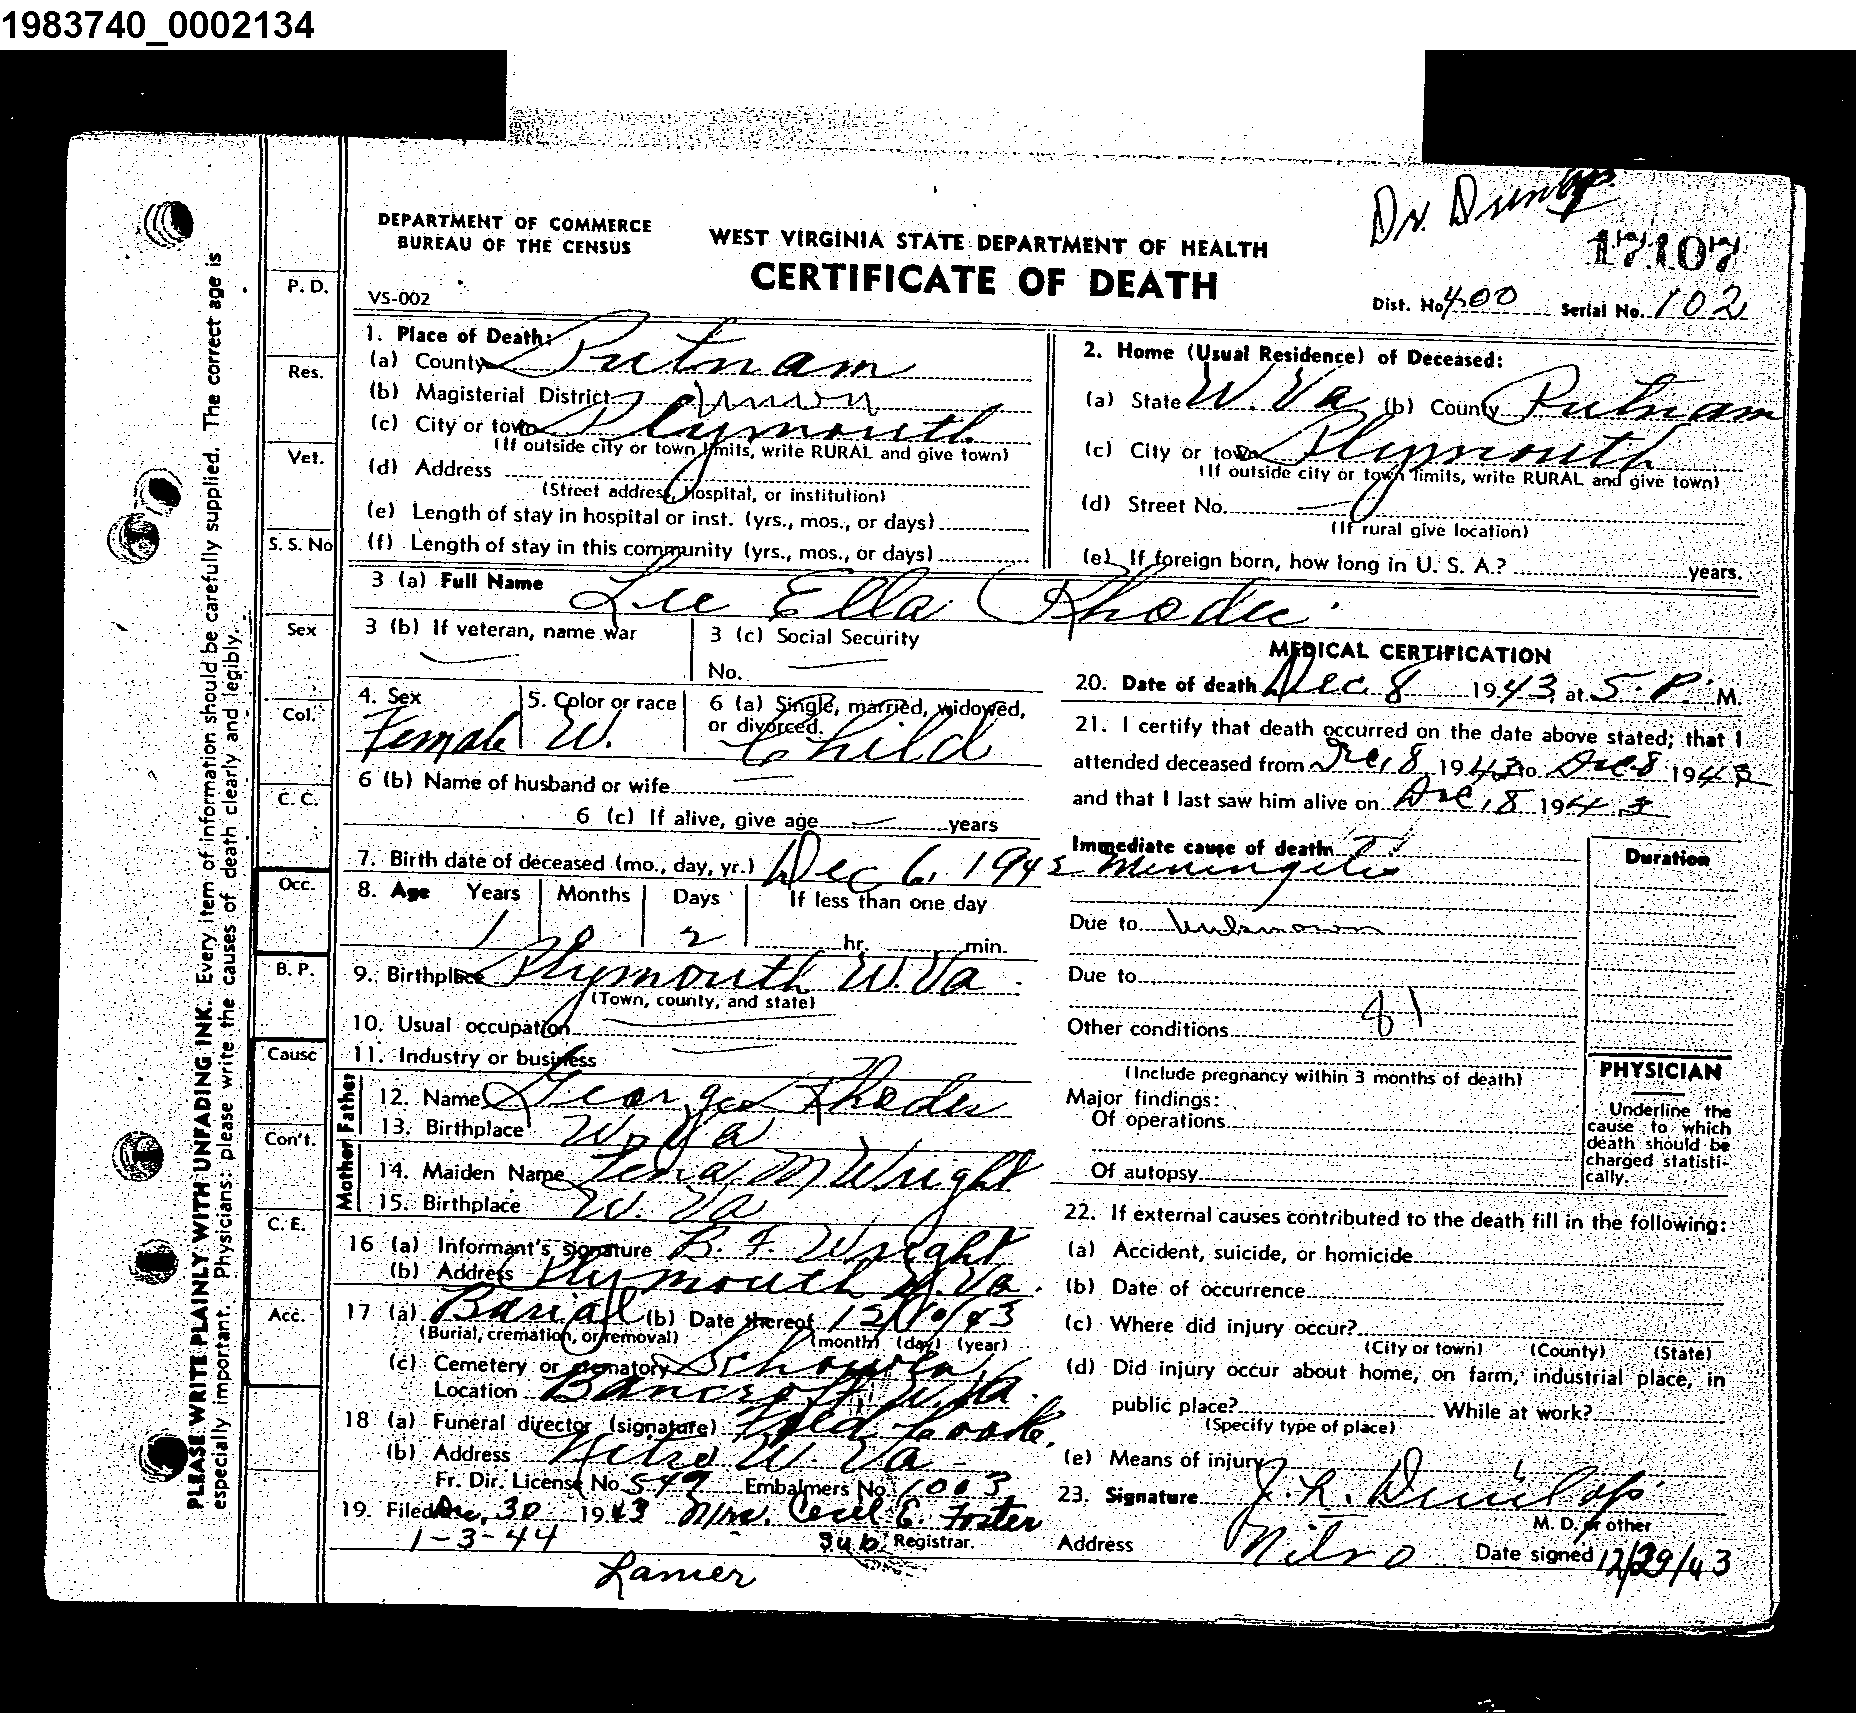 1983740_0002134
Dr. Dunlop
17107
DEPARTMENT OF COMMERCE
BUREAU OF THE CENSUS
WEST VIRGINIA STATE DEPARTMENT OF HEALTH
CERTIFICATE OF DEATH
VS-002
Dist. No. 400 Serial No. 102
PLEASE WRITE PLAINLY WITH UNFADING INK. Every item of information should be carefully supplied. The correct age is
especially important. Physicians: please write the causes of death clearly and legibly.
P. D.
Res.
Vet.
S. S. No
Sex
Col.
C. C.
Occ.
B. P.
Cause
Con't.
C. E.
Acc.
1. Place of Death:
(a) County Putnam
(b) Magisterial District Union
(c) City or town Plymouth
(If outside city or town limits, write RURAL and give town)
(d) Address
(Street address, hospital, or institution)
(e) Length of stay in hospital or inst. (yrs., mos., or days)
(f) Length of stay in this community (yrs., mos., or days)
2. Home (Usual Residence) of Deceased:
(a) State W. Va (b) County Putnam
(c) City or town Plymouth
(If outside city or town limits, write RURAL and give town)
(d) Street No. —
(If rural give location)
(e) If foreign born, how long in U. S. A.? years.
3 (a) Full Name Lee Ella Rhodes
3 (b) If veteran, name war —
3 (c) Social Security
No. —
4. Sex Female
5. Color or race W.
6 (a) Single, married, widowed,
or divorced. Child
6 (b) Name of husband or wife —
6 (c) If alive, give age — years
7. Birth date of deceased (mo., day, yr.) Dec 6, 1942
8. Age Years Months Days If less than one day
1 0 2 hr. min.
9. Birthplace Plymouth W. Va
(Town, county, and state)
10. Usual occupation —
11. Industry or business —
Father
12. Name George Rhodes
13. Birthplace W. Va
Mother
14. Maiden Name Lena M Wright
15. Birthplace W. Va
16 (a) Informant's signature B. F. Wright
(b) Address Plymouth W. Va.
17 (a) Burial (b) Date thereof 12/10/43
(Burial, cremation, or removal) (month) (day) (year)
(c) Cemetery or crematory Schowen
Location Bancroft W. Va.
18 (a) Funeral director (signature) Fred Cooke.
(b) Address Nitro W. Va
Fr. Dir. License No. 549 Embalmers No. 1003
19. Filed Dec. 30 1943 Mrs. Cecil E. Foster
1-3-44 Sub. Registrar.
Lanier
MEDICAL CERTIFICATION
20. Date of death Dec. 8 1943, at 5. P. M.
21. I certify that death occurred on the date above stated; that I
attended deceased from Dec, 8 1943 to Dec 8 1943
and that I last saw him alive on Dec, 8 1943
Immediate cause of death
Meningitis
Duration
Due to unknown
Due to
81
Other conditions
(Include pregnancy within 3 months of death)
Major findings:
Of operations
Of autopsy
PHYSICIAN
Underline the
cause to which
death should be
charged statisti-
cally.
22. If external causes contributed to the death fill in the following:
(a) Accident, suicide, or homicide
(b) Date of occurrence
(c) Where did injury occur?
(City or town) (County) (State)
(d) Did injury occur about home, on farm, industrial place, in
public place? While at work?
(Specify type of place)
(e) Means of injury
23. Signature J. R. Dunlop
M. D. or other
Address Nitro Date signed 12/29/43